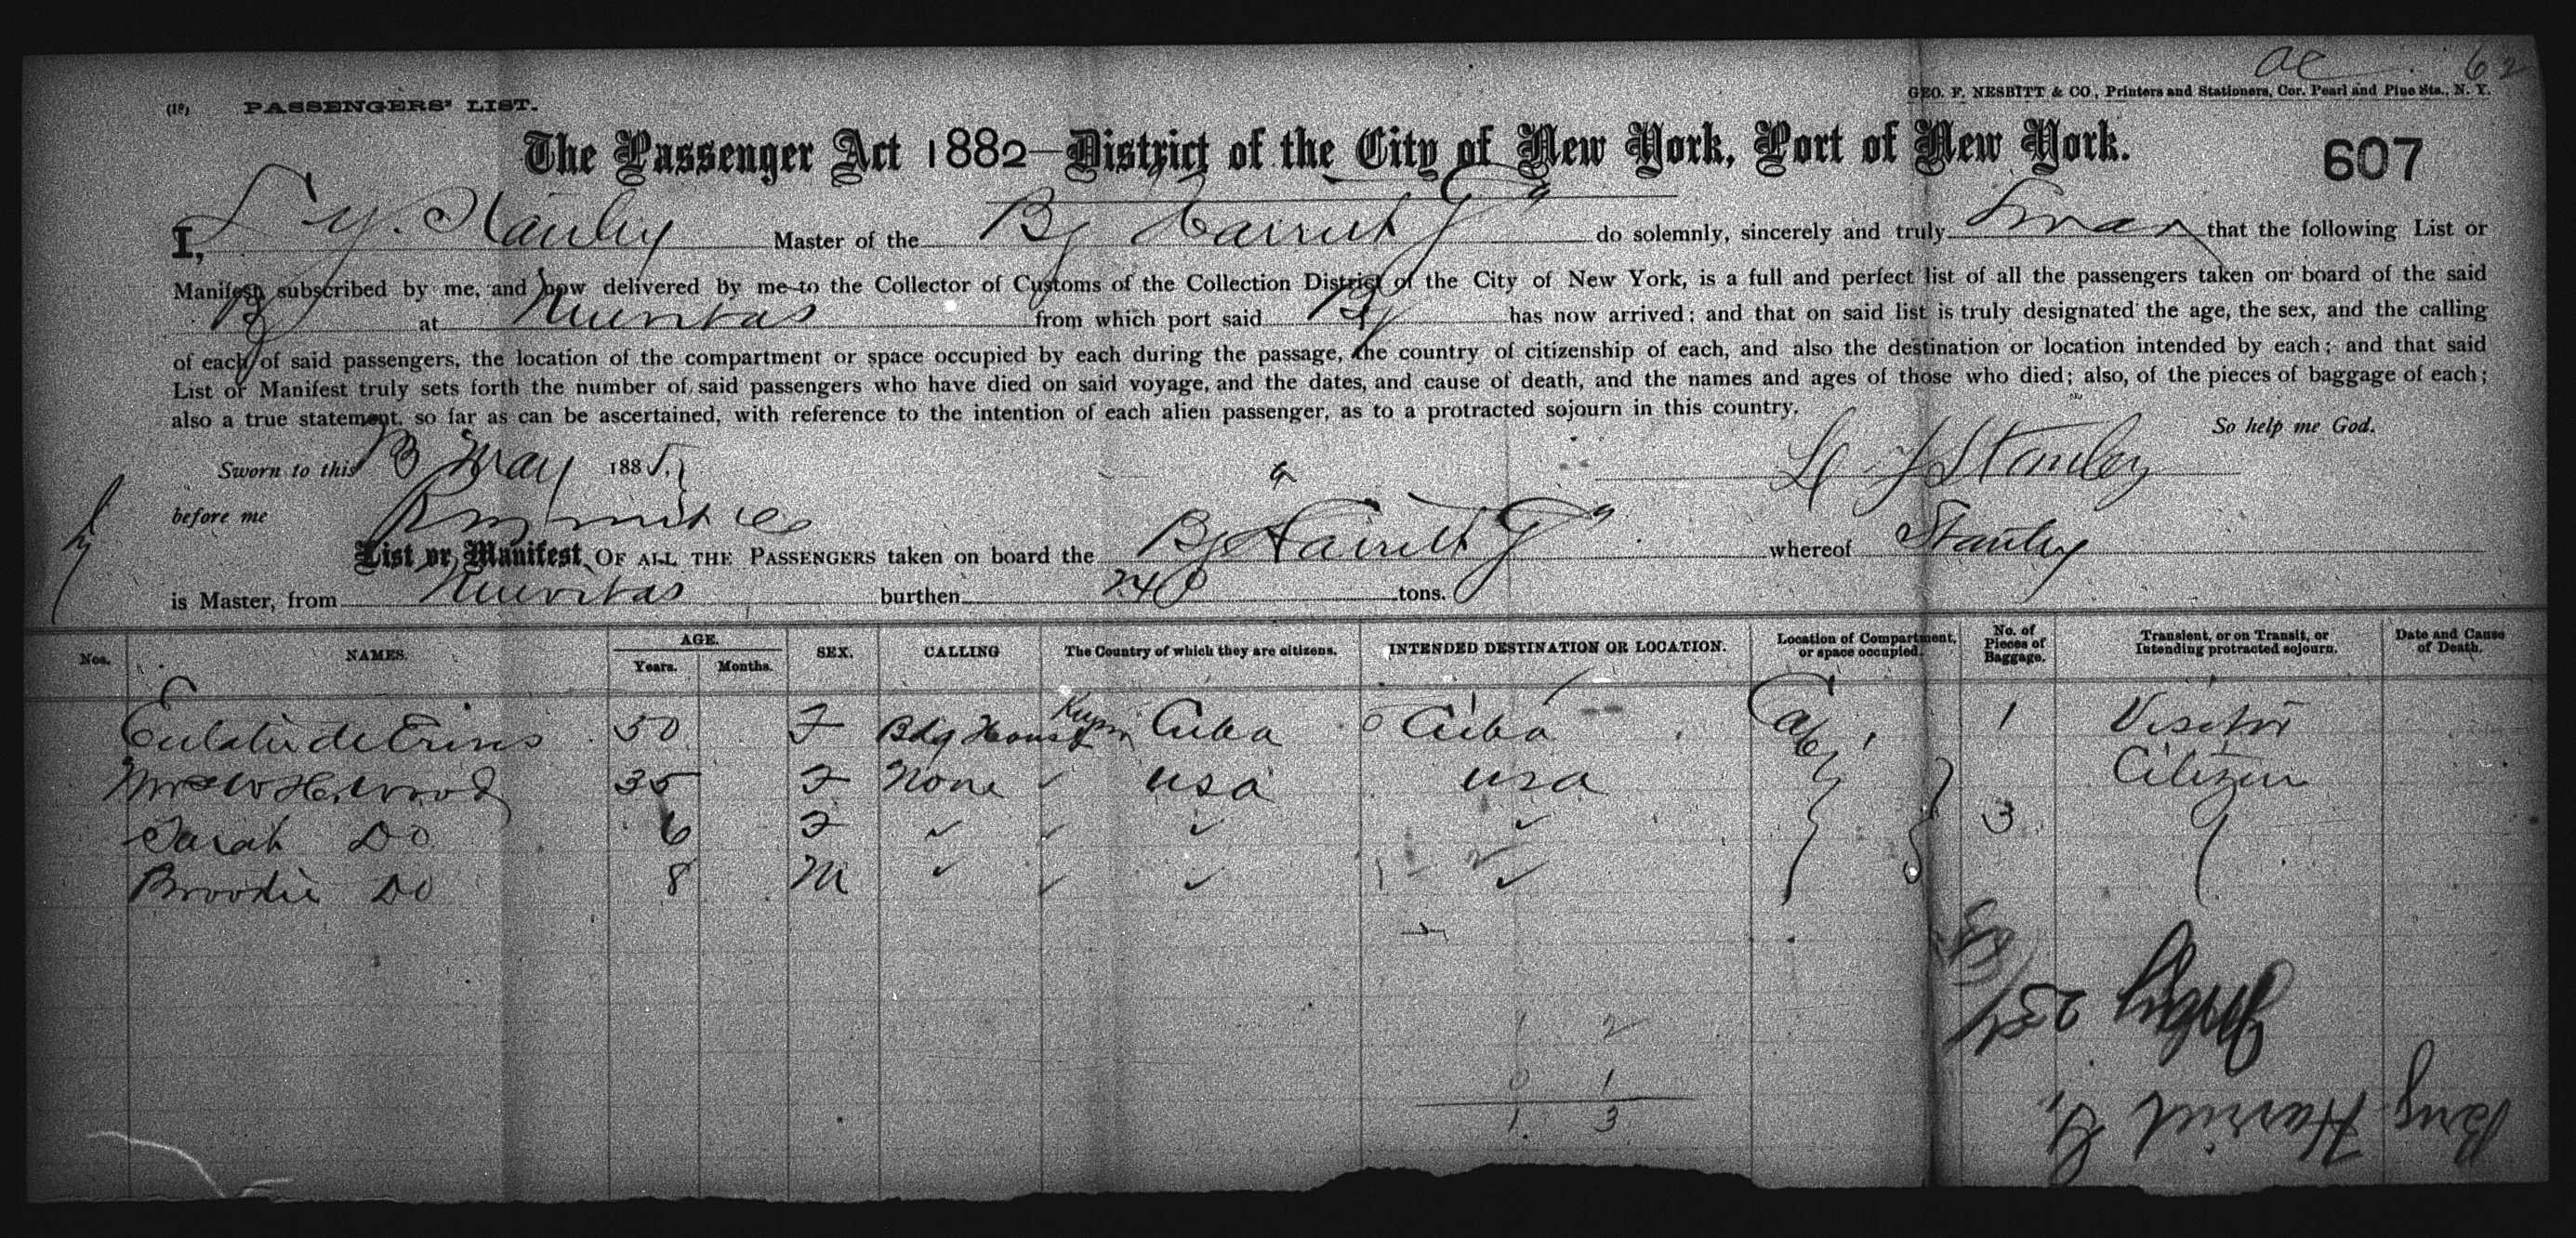 ae 62
(18) PASSENGERS' LIST. GEO. F. NESBITT & CO., Printers and Stationers, Cor. Pearl and Pine Sts., N. Y.
The Passenger Act 1882—District of the City of New York, Port of New York. 607
I, L Y. Stanley Master of the Bg Harriet G do solemnly, sincerely and truly Swear that the following List or
Manifest subscribed by me, and now delivered by me to the Collector of Customs of the Collection District of the City of New York, is a full and perfect list of all the passengers taken on board of the said
Bg at Nuevitas from which port said Bg has now arrived; and that on said list is truly designated the age, the sex, and the calling
of each of said passengers, the location of the compartment or space occupied by each during the passage, the country of citizenship of each, and also the destination or location intended by each; and that said
List or Manifest truly sets forth the number of said passengers who have died on said voyage, and the dates, and cause of death, and the names and ages of those who died; also, of the pieces of baggage of each;
also a true statement, so far as can be ascertained, with reference to the intention of each alien passenger, as to a protracted sojourn in this country.
So help me God.
Sworn to this 13 May 1885. Stanley
before me
List or Manifest OF ALL THE PASSENGERS taken on board the Bg Harriet G whereof Stanley
is Master, from Nuevitas burthen 240 tons.
Nos. NAMES. AGE. Years. Months. SEX. CALLING The Country of which they are citizens. INTENDED DESTINATION OR LOCATION. Location of Compartment, or space occupied. No. of Pieces of Baggage. Transient, or on Transit, or Intending protracted sojourn. Date and Cause of Death.
50 F Bdg House Cuba Cuba 1 Visitor
Mrs W H Wood 35 F None usa usa Citizen
Sarah Do 6 F 3
Brodie Do 8 M
1 2
0 1
1 3
Brig Harriet G